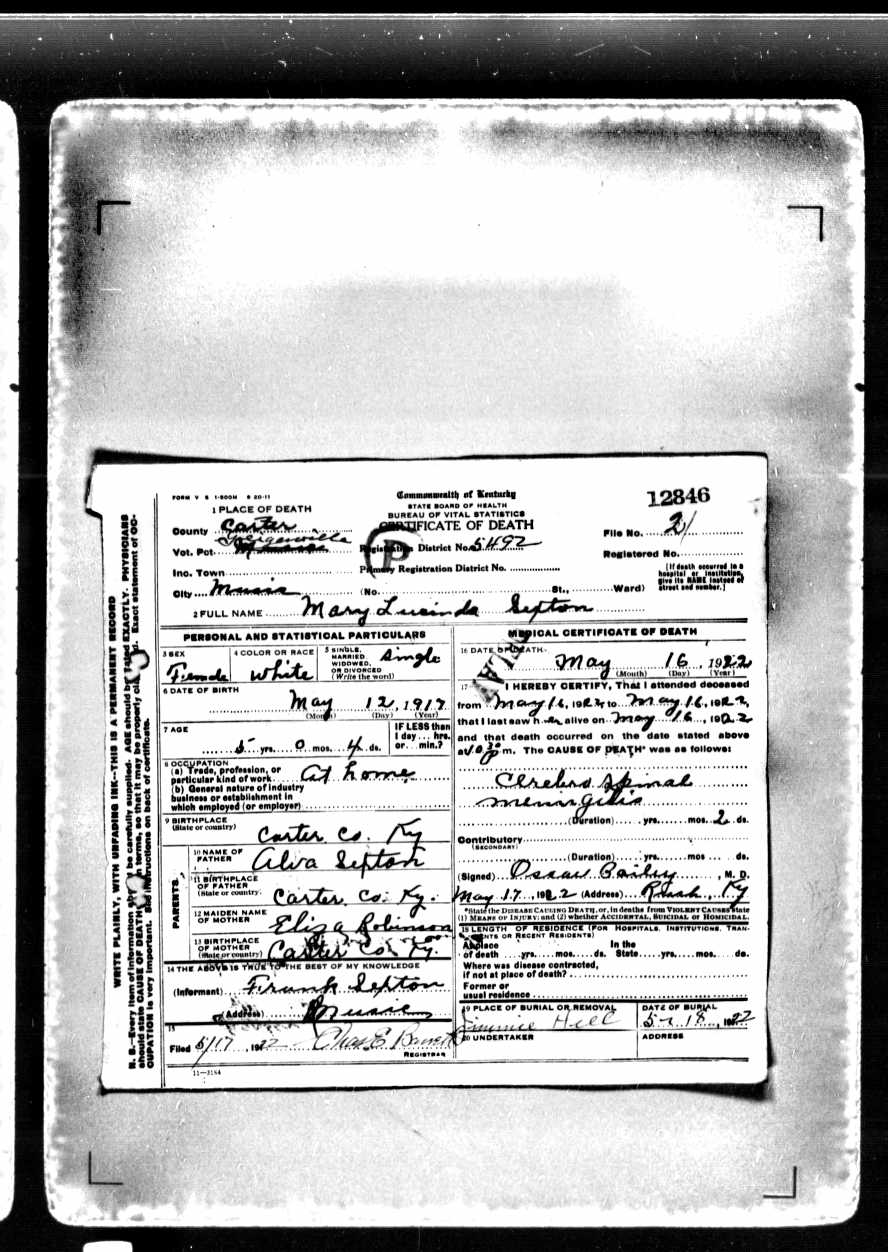 FORM V S 1-500M 9 20-11
Commonwealth of Kentucky
STATE BOARD OF HEALTH
BUREAU OF VITAL STATISTICS
CERTIFICATE OF DEATH
12846
1 PLACE OF DEATH
County Carter
Vot. Pct.
Inc. Town
City Music (No. St., Ward)
Registration District No. 5492
Primary Registration District No.
File No. 21
Registered No.
[If death occurred in a hospital or institution, give its NAME instead of street and number.]
P
2 FULL NAME Mary Lucinda Septon
PERSONAL AND STATISTICAL PARTICULARS
3 SEX Female
4 COLOR OR RACE White
5 SINGLE, MARRIED, WIDOWED, OR DIVORCED (Write the word) Single
6 DATE OF BIRTH
May 12, 1917
(Month) (Day) (Year)
7 AGE
5 yrs. 0 mos. 4 ds.
IF LESS than 1 day... hrs. or... min.?
8 OCCUPATION
(a) Trade, profession, or particular kind of work At home
(b) General nature of industry business or establishment in which employed (or employer)
9 BIRTHPLACE
(State or country)
Carter Co. Ky
PARENTS
10 NAME OF FATHER Alva Septon
11 BIRTHPLACE OF FATHER (State or country) Carter Co. Ky.
12 MAIDEN NAME OF MOTHER Eliza Robinson
13 BIRTHPLACE OF MOTHER (State or country) Carter Co. Ky.
14 THE ABOVE IS TRUE TO THE BEST OF MY KNOWLEDGE
(Informant) Frank Septon
(Address) Music
15
Filed 5/17, 1922 Chas E
REGISTRAR
11—3184
MEDICAL CERTIFICATE OF DEATH
16 DATE OF DEATH
May 16, 1922
(Month) (Day) (Year)
17 I HEREBY CERTIFY, That I attended deceased
from May 16, 1922, to May 16, 1922,
that I last saw her alive on May 16, 1922
and that death occurred on the date stated above
at 10 30 P m. The CAUSE OF DEATH* was as follows:
Cerebro Spinal
menengitis
(Duration) yrs. mos. 2 ds.
Contributory
(SECONDARY)
(Duration) yrs. mos. ds.
(Signed) , M. D.
May 17, 1922 (Address) Rush, Ky
*State the DISEASE CAUSING DEATH, or, in deaths from VIOLENT CAUSES state
(1) MEANS OF INJURY; and (2) whether ACCIDENTAL, SUICIDAL or HOMICIDAL.
18 LENGTH OF RESIDENCE (FOR HOSPITALS, INSTITUTIONS, TRANSIENTS OR RECENT RESIDENTS)
At place of death yrs. mos. ds. In the State yrs. mos. ds.
Where was disease contracted,
if not at place of death?
Former or
usual residence
19 PLACE OF BURIAL OR REMOVAL
Jimmie Hill
DATE OF BURIAL
5-18, 1922
20 UNDERTAKER
ADDRESS
WRITE PLAINLY, WITH UNFADING INK—THIS IS A PERMANENT RECORD
N. B.—Every item of information should be carefully supplied. AGE should be stated EXACTLY. PHYSICIANS
should state CAUSE OF DEATH in plain terms, so that it may be properly classified. Exact statement of OC-
CUPATION is very important. See instructions on back of certificate.